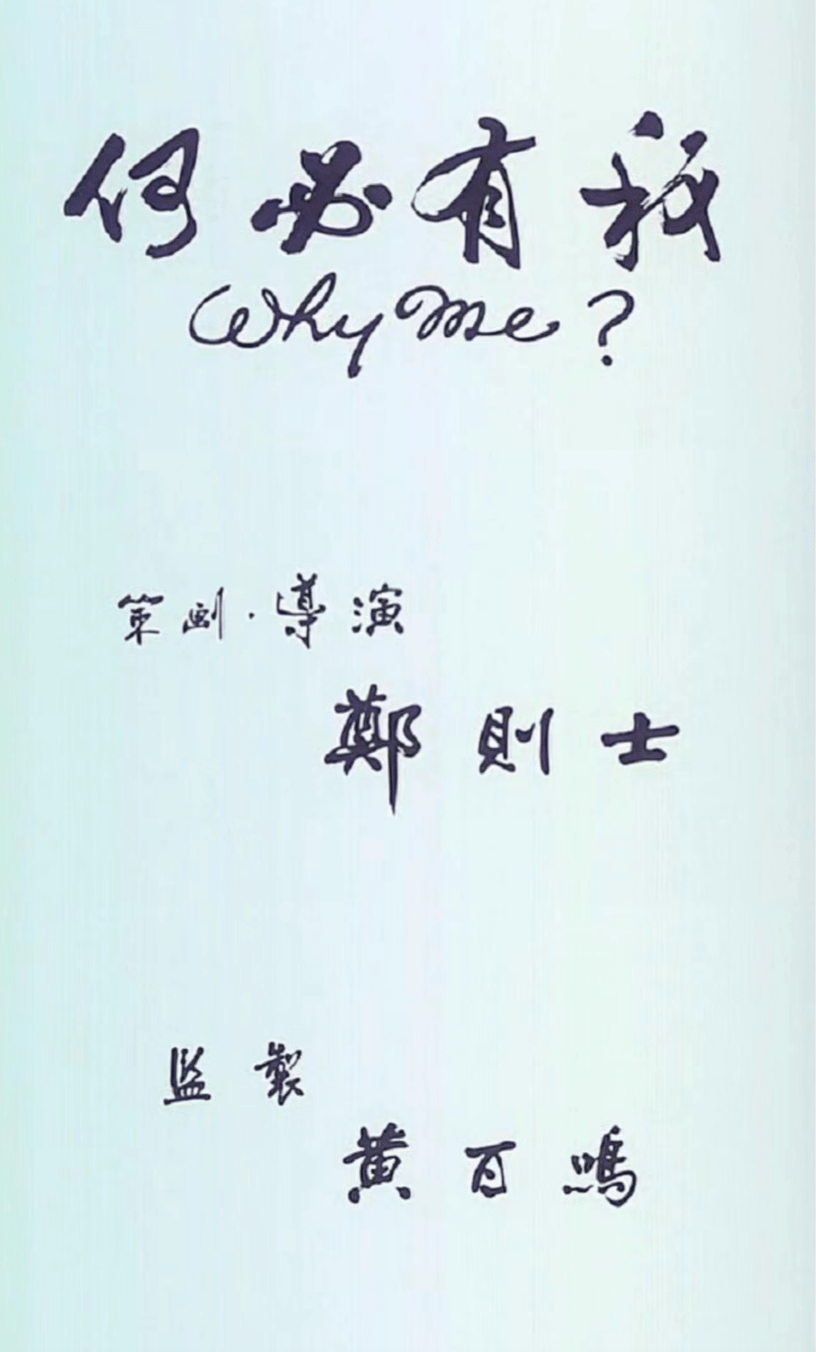 何必有我
Why Me?
策劃·導演
鄭則士
監製
黃百鳴